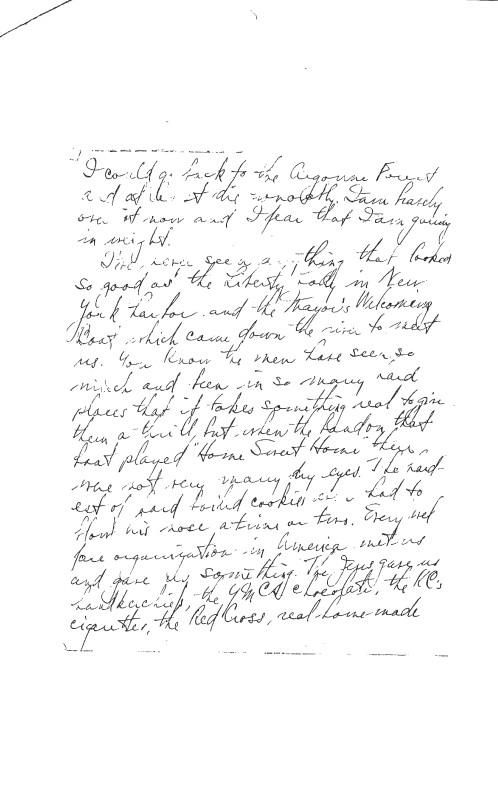 I could go back to the Argonne Forest
and die I am hardly
over it now and I fear that I am gaining
in weight.
I've never seen anything that looked
so good as the Liberty Lady in New
York harbor and the Mayor's Welcoming
Boat, which came down the river to meet
us. You know the men have seen so
much and been in so many hard
places that it takes something real to give
them a thrill, but when the band on that
boat played "Home Sweet Home" there
were not very many dry eyes. The hard-
est of hard boiled cookies even had to
blow his nose a time or two. Every wel
fare organization in America met us
and gave us something. The Jews gave us
handkerchiefs, the YMCA chocolate, the KC's
cigarettes, the Red Cross, real home made